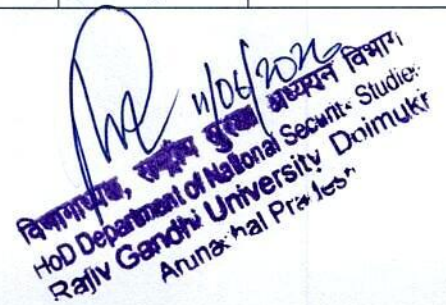 11/06/2026
विभागाध्यक्ष, राष्ट्रीय सुरक्षा अध्ययन विभाग
HoD Department of National Securit- Studie-
Rajiv Gandhi University Doimukr
Arunachal Pradesh